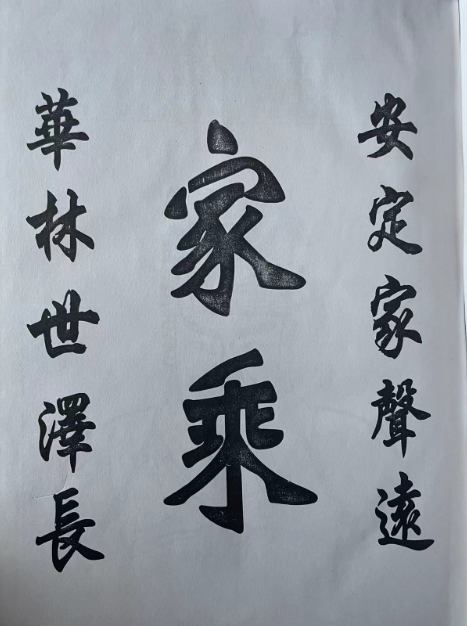 安定家聲遠
家乘
華林世澤長